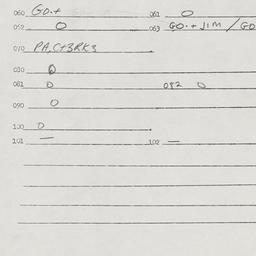 060 Go.+ 061 0
062 0 063 GO.+ JIM / GO
070 PA, C+BRKS
080 0
081 0 082 0
090 0
100 0
101 — 102 —